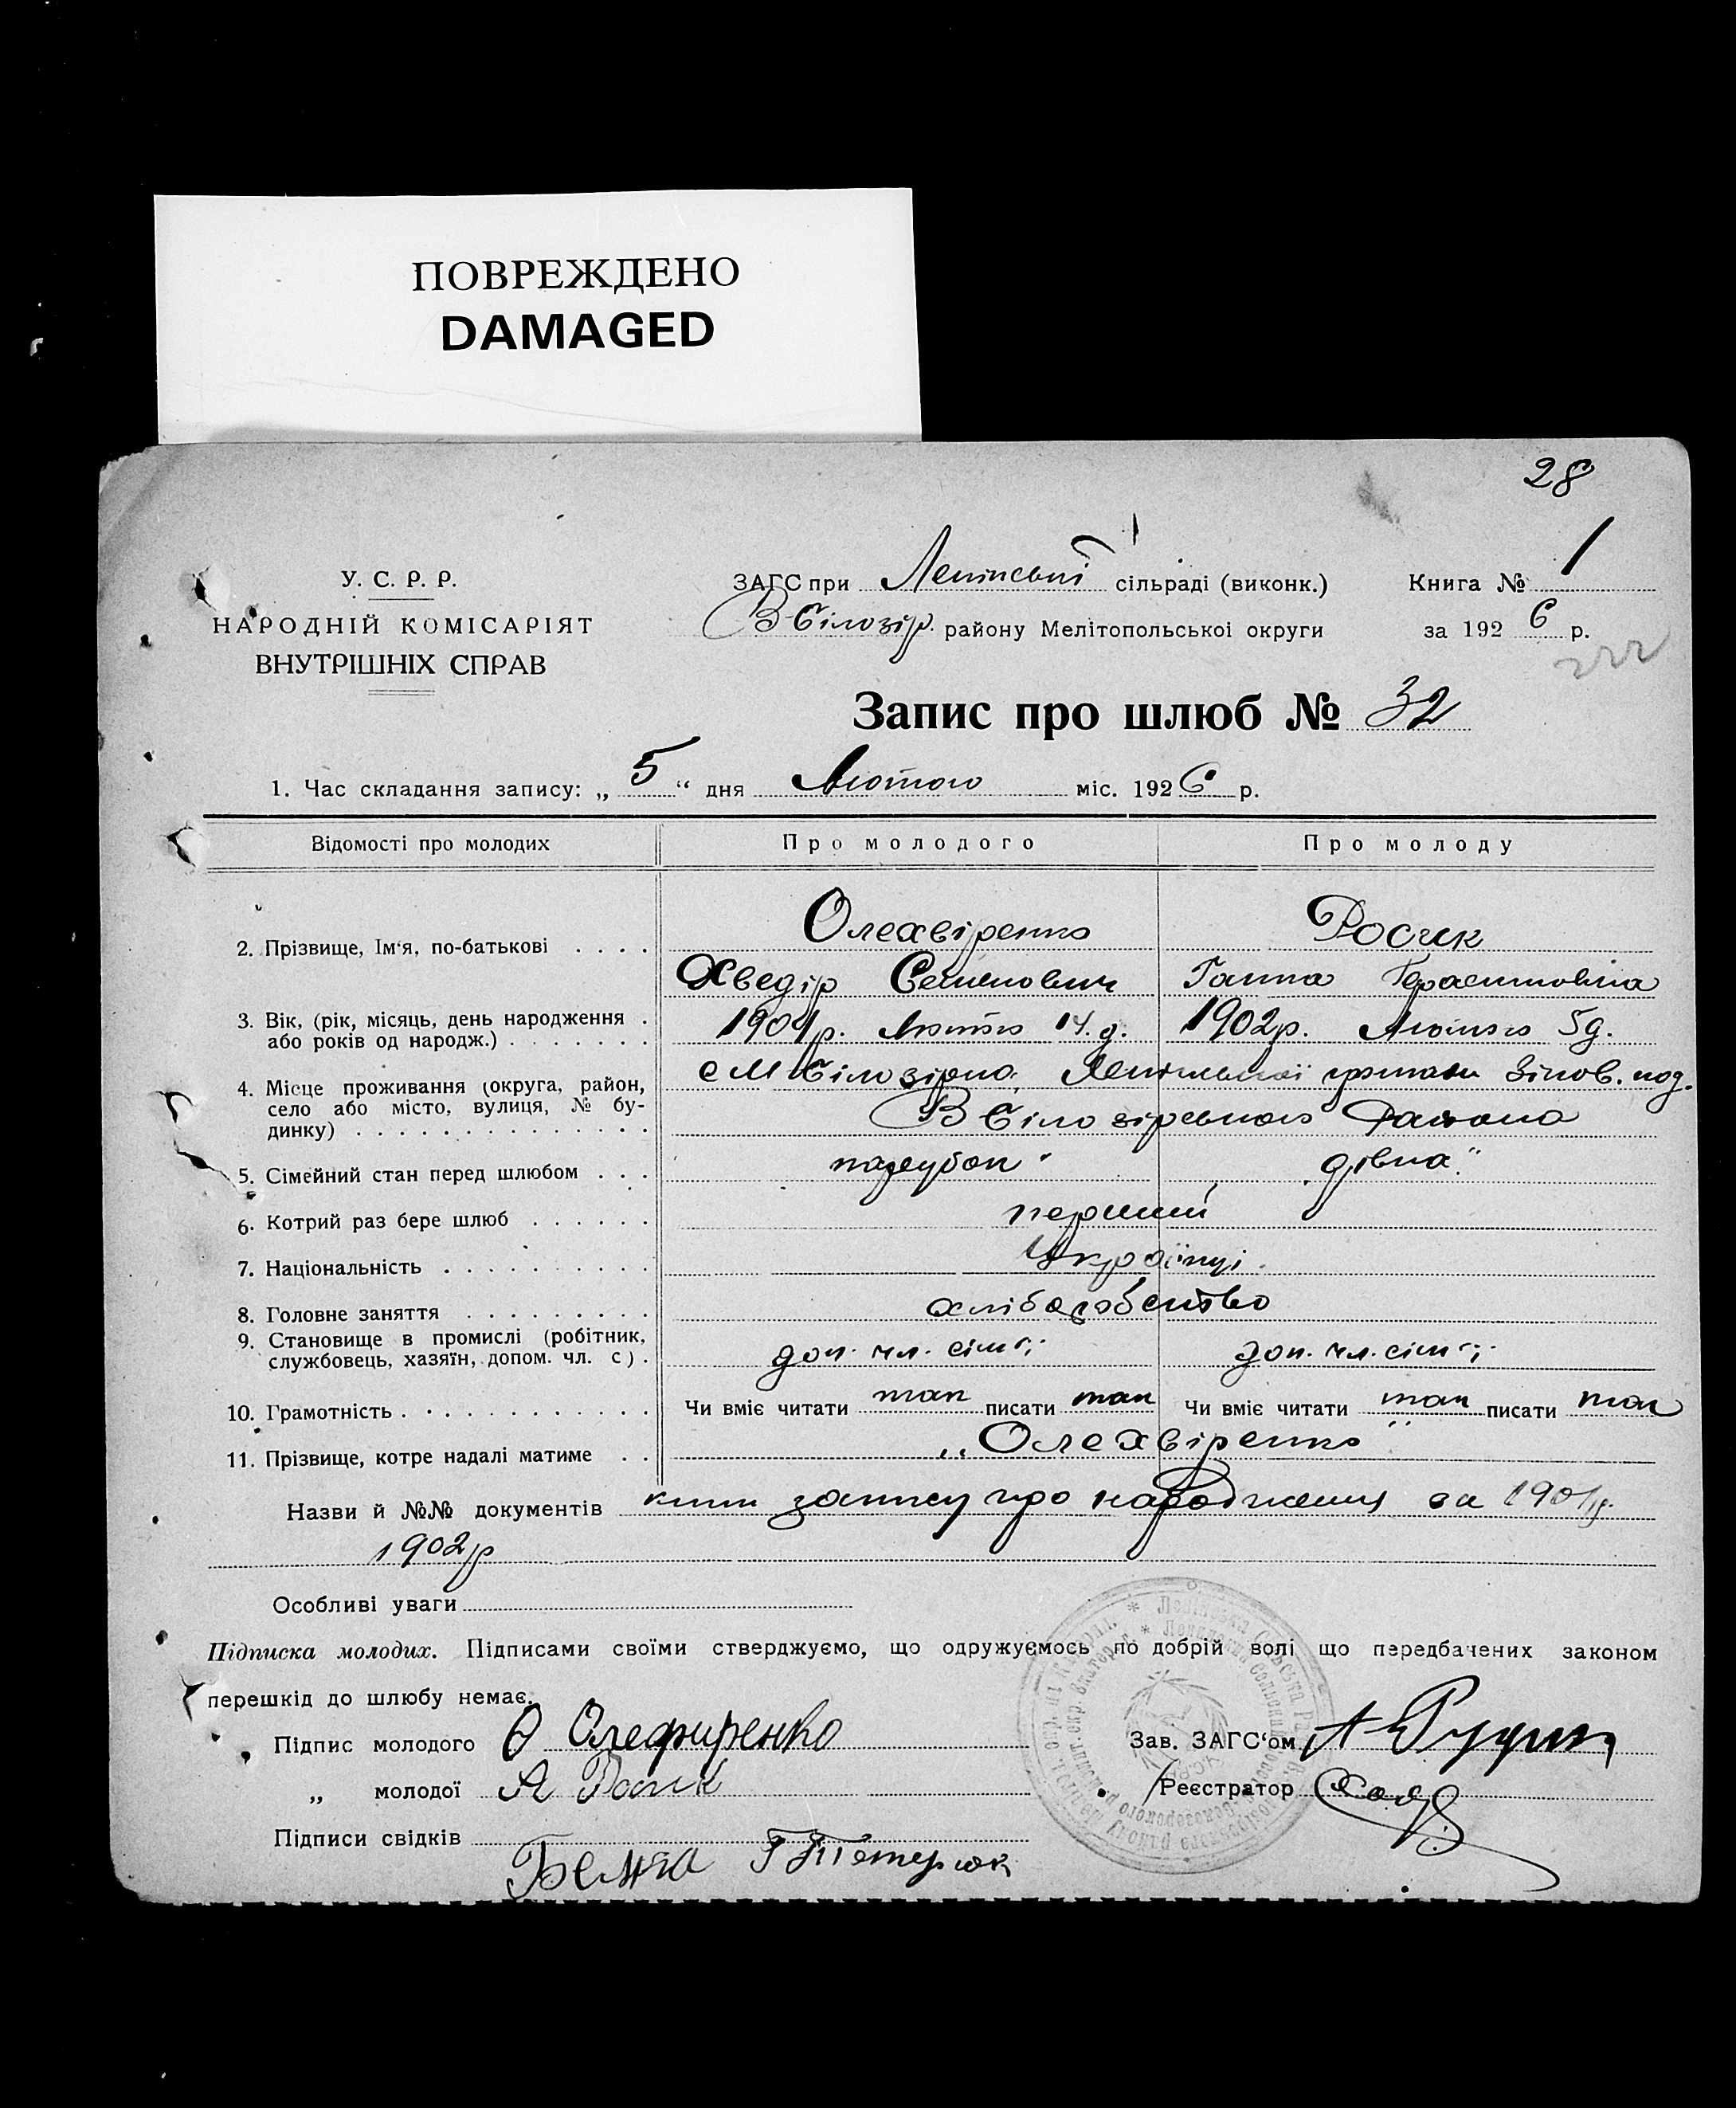 ПОВРЕЖДЕНО
DAMAGED
28
У. С. Р. Р.
НАРОДНІЙ КОМІСАРІЯТ
ВНУТРІШНІХ СПРАВ
ЗАГС при Ленінській сільраді (виконк.)
Книга № 1
В Білозір. району Мелітопольської округи
за 1926 р.
222
Запис про шлюб № 32
1. Час складання запису: „ 5 “ дня Лютого міс. 1926 р.
Відомості про молодих
Про молодого
Про молоду
2. Прізвище, Ім‘я, по-батькові . . . .
Олехвіренко
Росик
Хведір Семенович
Ганна Герасимовна
3. Вік, (рік, місяць, день народження .
або років од народж.) . . . . . . .
1901р. Лютого 14. д.
1902р. Лютого 5д.
4. Місце проживання (округа, район,
село або місто, вулиця, № бу-
динку) . . . . . . . . . . . . . . .
с М Білозірка, Ленінської громади Зінов. под.
В Білозірського Района
5. Сімейний стан перед шлюбом . . .
парубок
„дівка“
6. Котрий раз бере шлюб . . . . . .
перший
7. Національність . . . . . . . . . .
Українці
8. Головне заняття . . . . . . . . .
хліборобство
9. Становище в промислі (робітник,
службовець, хазяїн, допом. чл. с) .
доп. чл. сім‘ї
доп. чл. сім‘ї
10. Грамотність . . . . . . . . . . . .
Чи вміє читати так писати так
Чи вміє читати так писати так
11. Прізвище, котре надалі матиме . .
„Олехвіренко“
Назви й №№ документів книги запису про народження за 1901р.
1902р
Особливі уваги
Підписка молодих. Підписами своїми стверджуємо, що одружуємось по добрій волі що передбачених законом
перешкід до шлюбу немає.
Підпис молодого Ѳ Олефиренко
Зав. ЗАГС‘ом А
„ молодої А Росик
Реєстратор
Підписи свідків